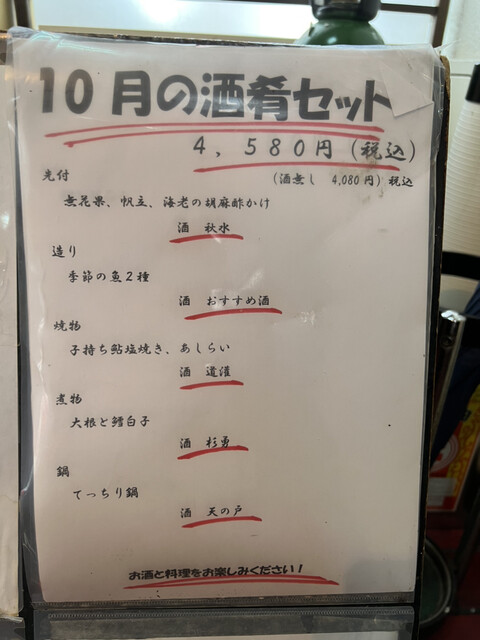 10月の酒肴セット
4，580円（税込）
（酒無し　4,080円）税込
先付
無花果、帆立、海老の胡麻酢かけ
酒　秋水
造り
季節の魚2種
酒　おすすめ酒
焼物
子持ち鮎塩焼き、あしらい
酒　道灌
煮物
大根と鱈白子
酒　杉勇
鍋
てっちり鍋
酒　天の戸
お酒と料理をお楽しみください！